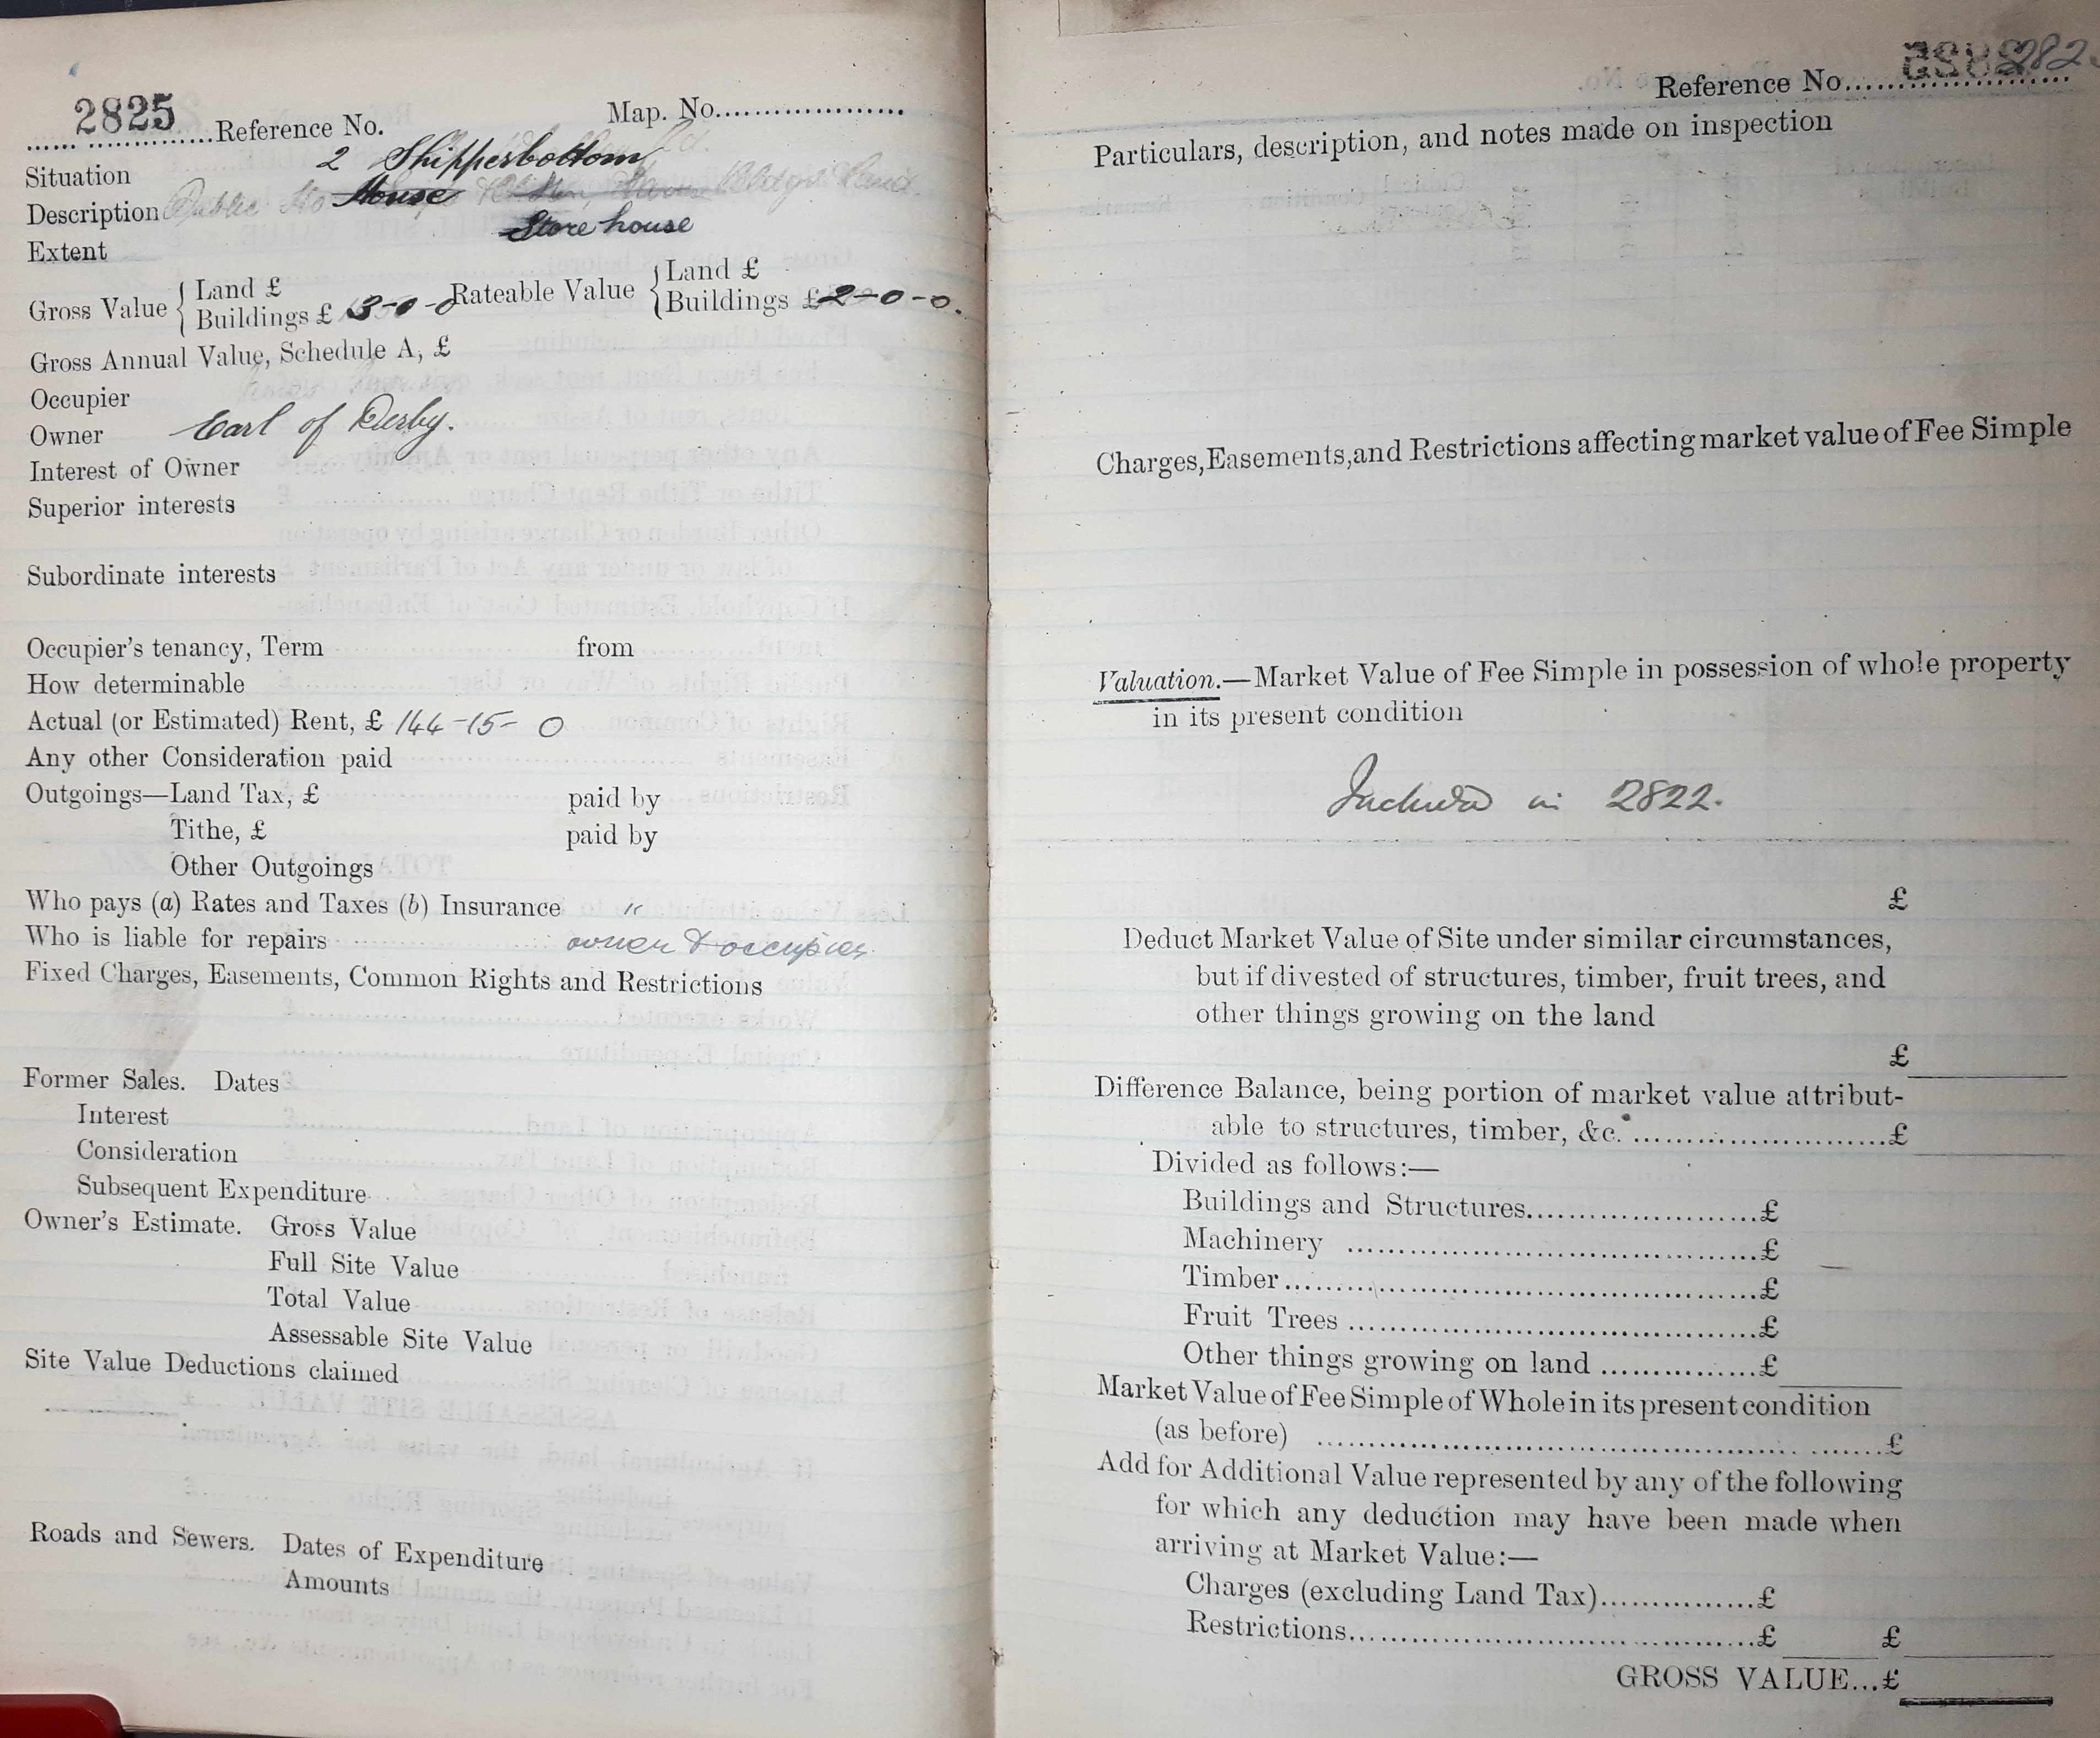 2825
......Reference No. Map. No...................
Situation 2 Shipperbottom
Description Public House Bldgs Land
Store house
Extent
Gross Value { Land £ Rateable Value { Land £
Buildings £ 3-0-0 Buildings £ 2-0-0.
Gross Annual Value, Schedule A, £
Occupier
Owner Earl of Derby.
Interest of Owner
Superior interests
Subordinate interests
Occupier's tenancy, Term from
How determinable
Actual (or Estimated) Rent, £ 144-15-0
Any other Consideration paid
Outgoings—Land Tax, £ paid by
Tithe, £ paid by
Other Outgoings
Who pays (a) Rates and Taxes (b) Insurance "
Who is liable for repairs owner & occupier.
Fixed Charges, Easements, Common Rights and Restrictions
Former Sales. Dates
Interest
Consideration
Subsequent Expenditure
Owner's Estimate. Gross Value
Full Site Value
Total Value
Assessable Site Value
Site Value Deductions claimed
Roads and Sewers. Dates of Expenditure
Amounts
Reference No.....................
Particulars, description, and notes made on inspection
Charges, Easements, and Restrictions affecting market value of Fee Simple
Valuation.—Market Value of Fee Simple in possession of whole property
in its present condition
Included in 2822.
£
Deduct Market Value of Site under similar circumstances,
but if divested of structures, timber, fruit trees, and
other things growing on the land
£
Difference Balance, being portion of market value attribut-
able to structures, timber, &c. ........................£
Divided as follows:—
Buildings and Structures......................£
Machinery ......................................£
Timber............................................£
Fruit Trees ......................................£
Other things growing on land ...............£
Market Value of Fee Simple of Whole in its present condition
(as before) ......................................................£
Add for Additional Value represented by any of the following
for which any deduction may have been made when
arriving at Market Value:—
Charges (excluding Land Tax)...............£
Restrictions......................................£ £
GROSS VALUE...£